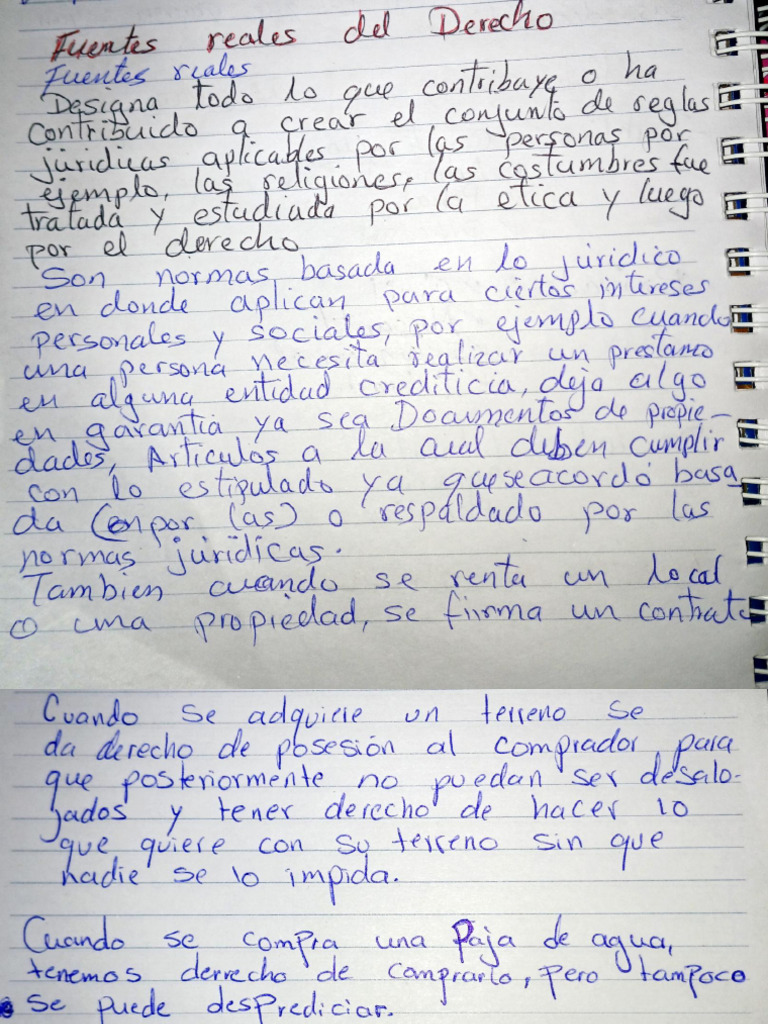 Fuentes reales del Derecho
Fuentes reales
Designa todo lo que contribuye o ha
contribuido a crear el conjunto de reglas
jurídicas aplicables por las personas por
ejemplo, las religiones, las costumbres fue
tratada y estudiada por la etica y luego
por el derecho
Son normas basada en lo jurídico
en donde aplican para ciertos intereses
personales y sociales, por ejemplo cuando
una persona necesita realizar un prestamo
en alguna entidad crediticia, deja algo
en garantía ya sea Documentos de propie-
dades, Artículos a la cual deben cumplir
con lo estipulado ya que se acordó basa
da (en por las) o respaldado por las
normas jurídicas.
Tambien cuando se renta un local
o una propiedad, se firma un contrato
Cuando se adquiere un terreno se
da derecho de posesión al comprador, para
que posteriormente no puedan ser desalo-
jados y tener derecho de hacer lo
que quiere con su terreno sin que
nadie se lo impida.
Cuando se compra una Paja de agua,
tenemos derrecho de comprarlo, pero tampoco
se puede desprediciar.